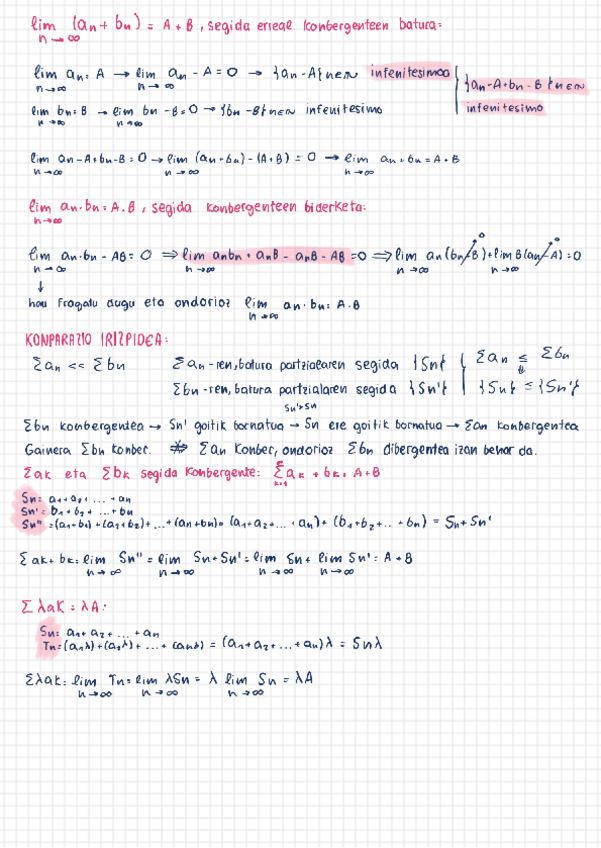 lim (an + bn) = A + B, segida erreal konbergenteen batura:
n→∞
lim an = A → lim an - A = 0 → {an - A}n∈N infinitesimoa
n→∞ n→∞
{an - A + bn - B}n∈N
lim bn = B → lim bn - B = 0 → {bn - B}n∈N infinitesimo
n→∞ n→∞
infinitesimo
lim an - A + bn - B = 0 → lim (an + bn) - (A + B) = 0 → lim an + bn = A + B
n→∞ n→∞ n→∞
lim an · bn = A · B, segida konbergenteen biderketa:
n→∞
lim an · bn - AB = 0 ⟹ lim anbn + anB - anB - AB = 0 ⟹ lim an(bn - B) + lim B(an - A) = 0
n→∞ n→∞ n→∞ n→∞
↓
hau frogatu dugu eta ondorioz lim an · bn = A · B
n→∞
KONPARAZIO IRIZPIDEA:
Σan << Σbn Σan-ren, batura partzialaren segida {Sn} Σan ≤ Σbn
Σbn-ren, batura partzialaren segida {Sn'} {Sn} ≤ {Sn'}
Sn' > Sn
Σbn konbergentea → Sn' goitik bornatua → Sn ere goitik bornatua → Σan konbergentea
Gainera Σbn konber. ⇏ Σan konber, ondorioz Σbn dibergentea izan behar da.
Σak eta Σbk segida konbergente: Σ ak + bk = A + B
k=1
Sn = a1 + a2 + ... + an
Sn' = b1 + b2 + ... + bn
Sn'' = (a1 + b1) + (a2 + b2) + ... + (an + bn) = (a1 + a2 + ... + an) + (b1 + b2 + ... + bn) = Sn + Sn'
Σak + bk = lim Sn'' = lim Sn + Sn' = lim Sn + lim Sn' = A + B
n→∞ n→∞ n→∞ n→∞
Σλak = λA:
Sn = a1 + a2 + ... + an
Tn = (a1λ) + (a2λ) + ... + (anλ) = (a1 + a2 + ... + an)λ = Snλ
Σλak = lim Tn = lim λSn = λ lim Sn = λA
n→∞ n→∞ n→∞